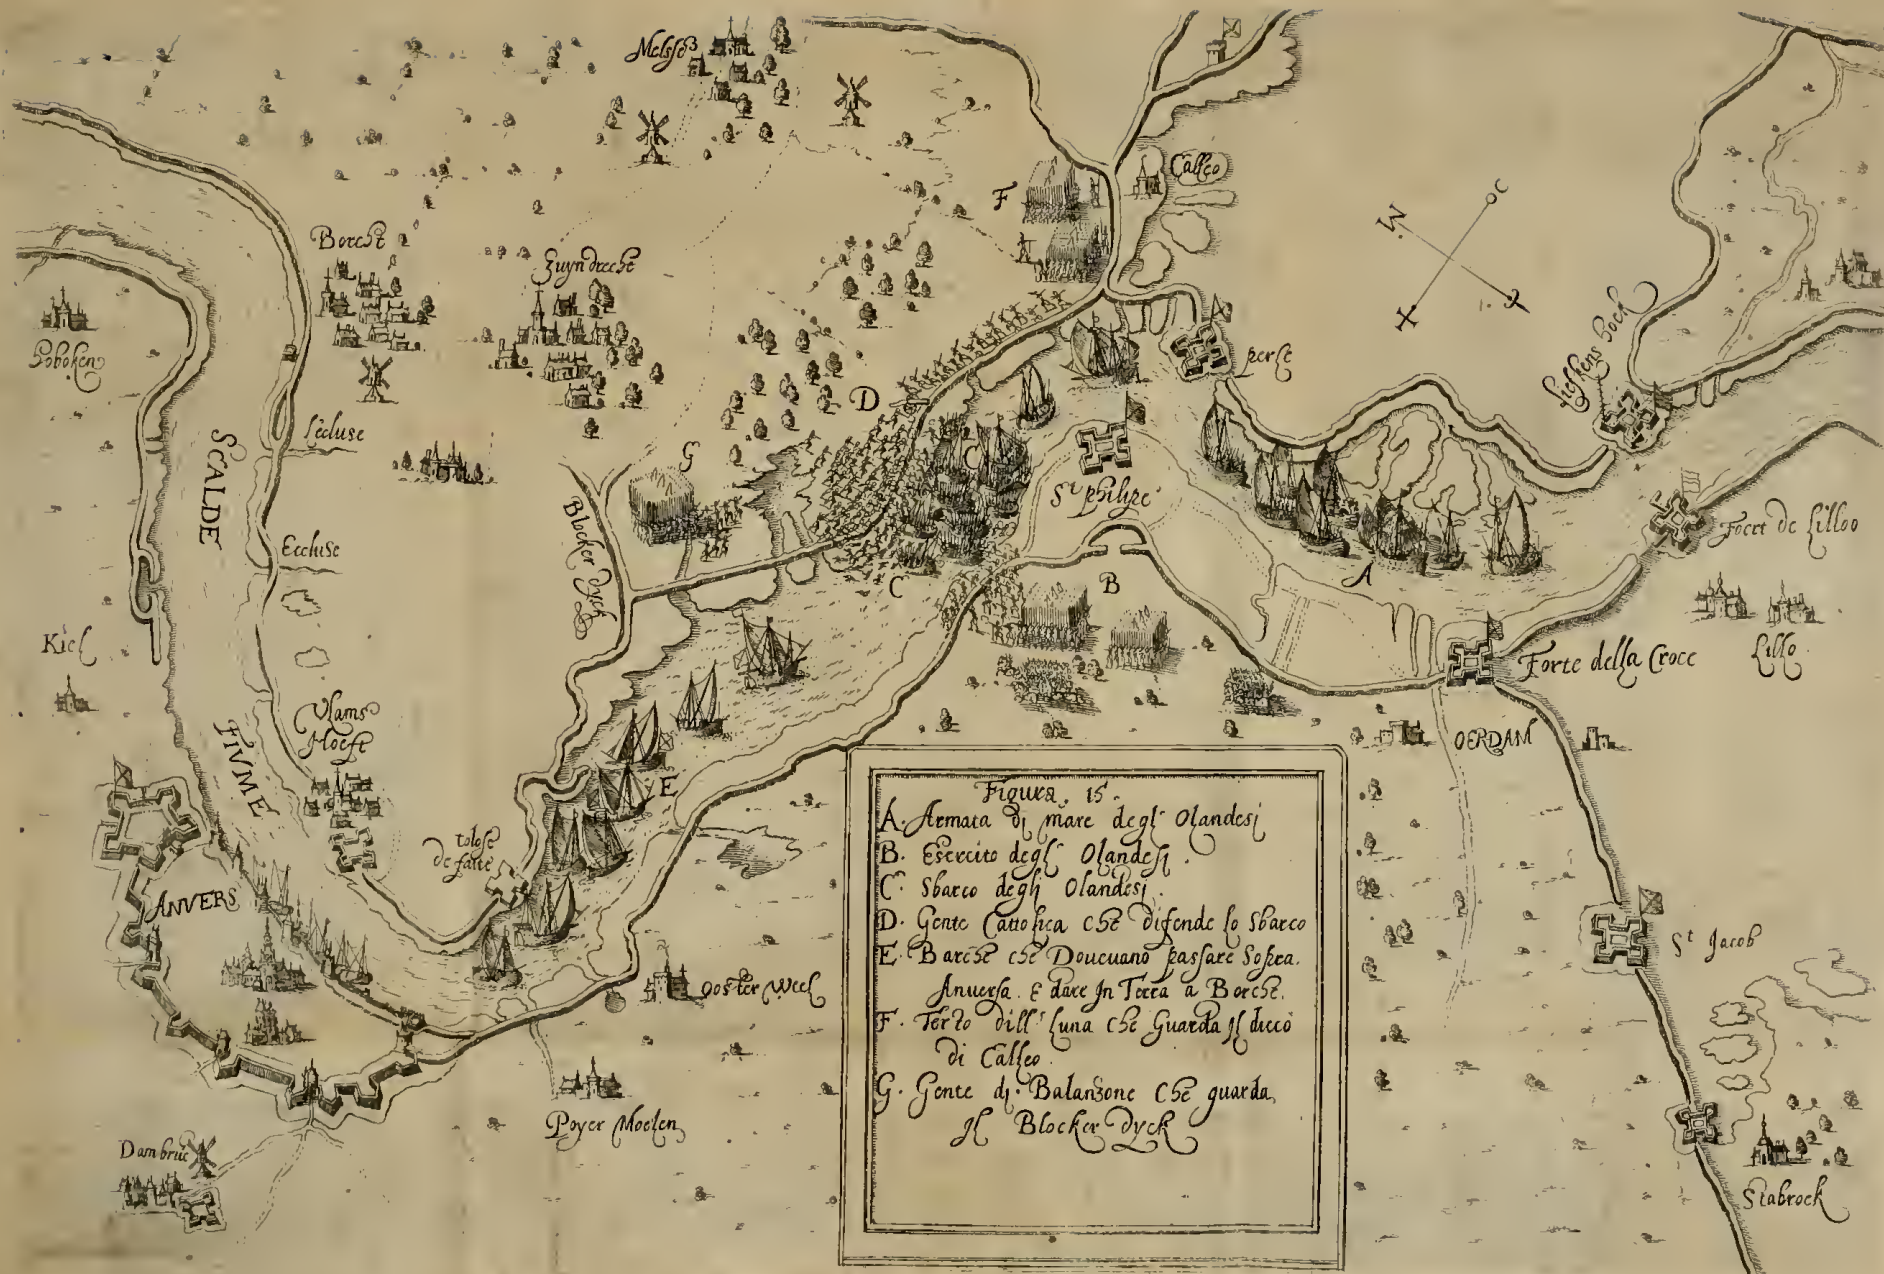 Melssē
Calloo
W
Borcht
Zuyndrecht
F
A
Hoboken
perle
Liefkens hoek
D
SCALDE
Lecluse
G
C
St philipe
Foert de Lilloo
Blocker Dyck
Eccluse
A
C
B
Kiel
Lillo
Forte della Croce
FIVME
Vlams
Hoeft
OERDAM
E
tolose
de faite
ANVERS
St Jacob
Ooster Weel
Poyer Moelen
Dambruc
Stabroek
Figura. 15.
A. Armata di mare degl' Olandesi
B. Esercito degl' Olandesi.
C. Sbarco degli Olandesi.
D. Gente Cattolica che difende lo Sbarco
E. Barche che Doueuano passare Sopra.
Anuersa. E dare In Terra a Borcht.
F. Terzo dill' luna che Guarda Il dicco
di Calloo
G. Gente di. Balanzone Che guarda
Il Blocker dyck